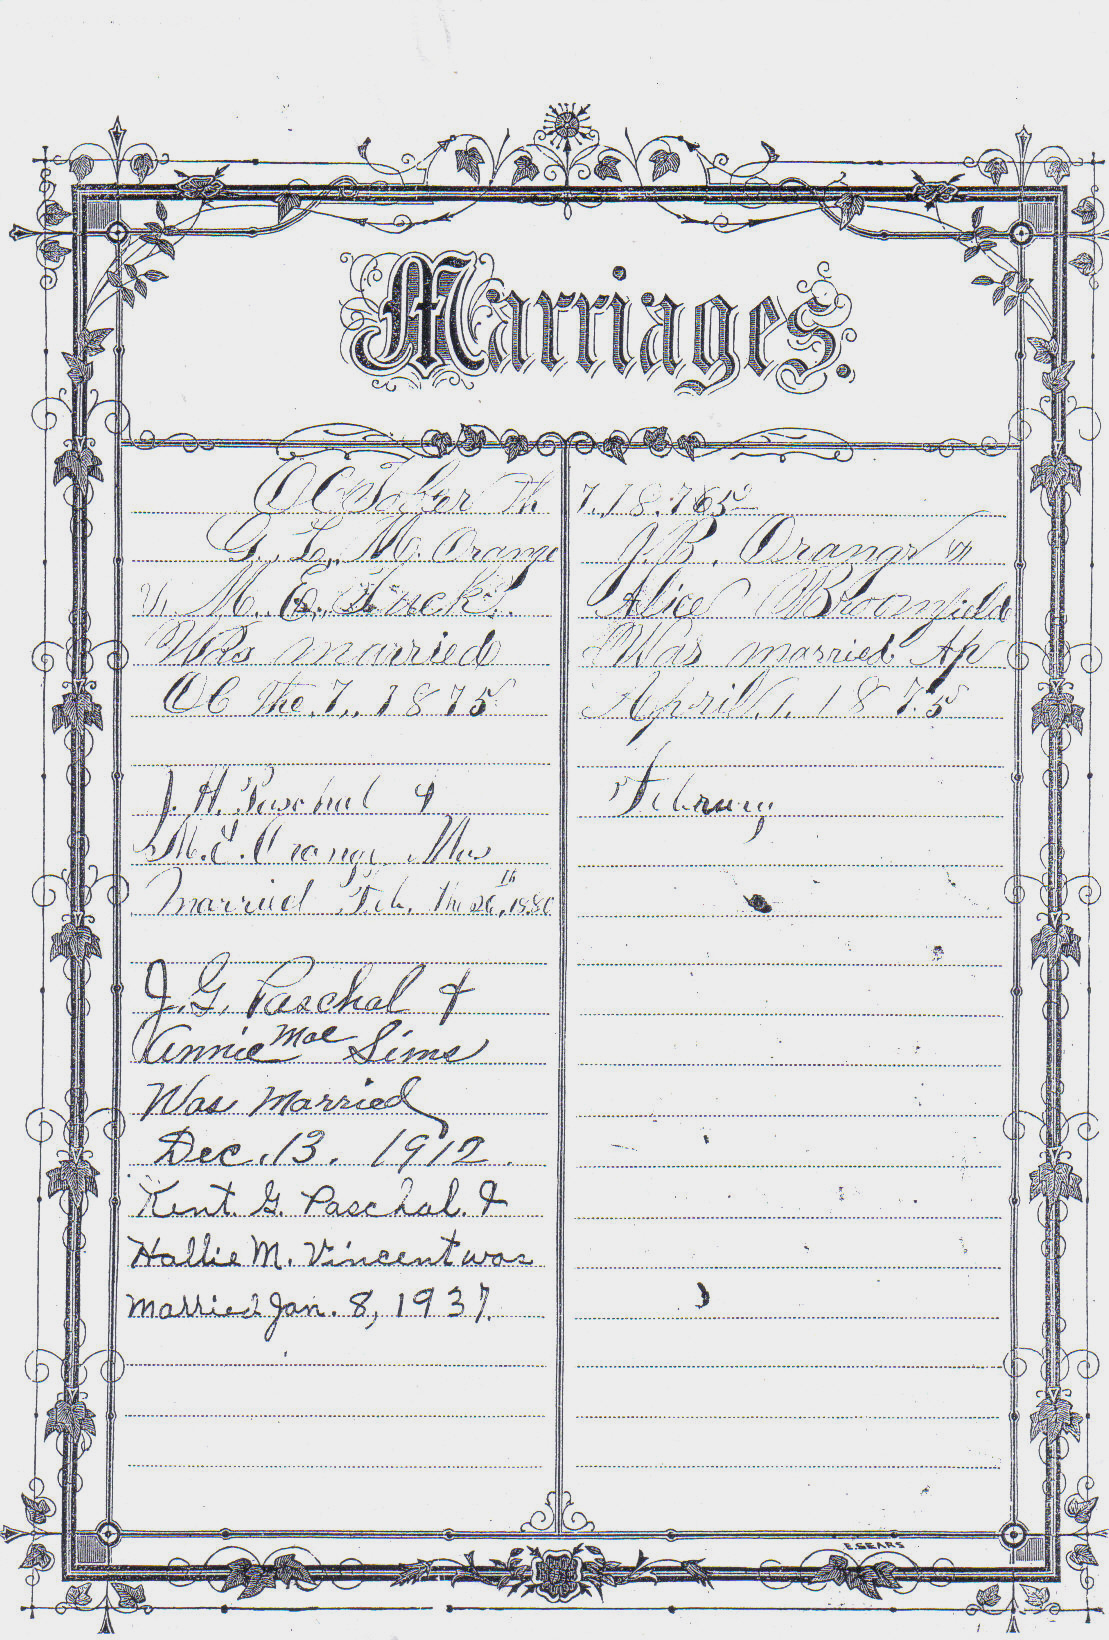 Marriages.
October Th
G. L. M. Orange
M. E.
Was married
Oc the. 7., 1875
J. H. Paschal &
M. E. Orange Was
Married Feb. the 26, th 1880
J. G. Paschal &
Annie Mae Sims
Was Married
Dec. 13. 1912.
Kent. G. Paschal. &
Hallie M. Vincent was
married Jan. 8, 1937.
J. B. Orange
Alice Broomfield
Was married Ap
April, 1. 1875
Februay
E. SEARS